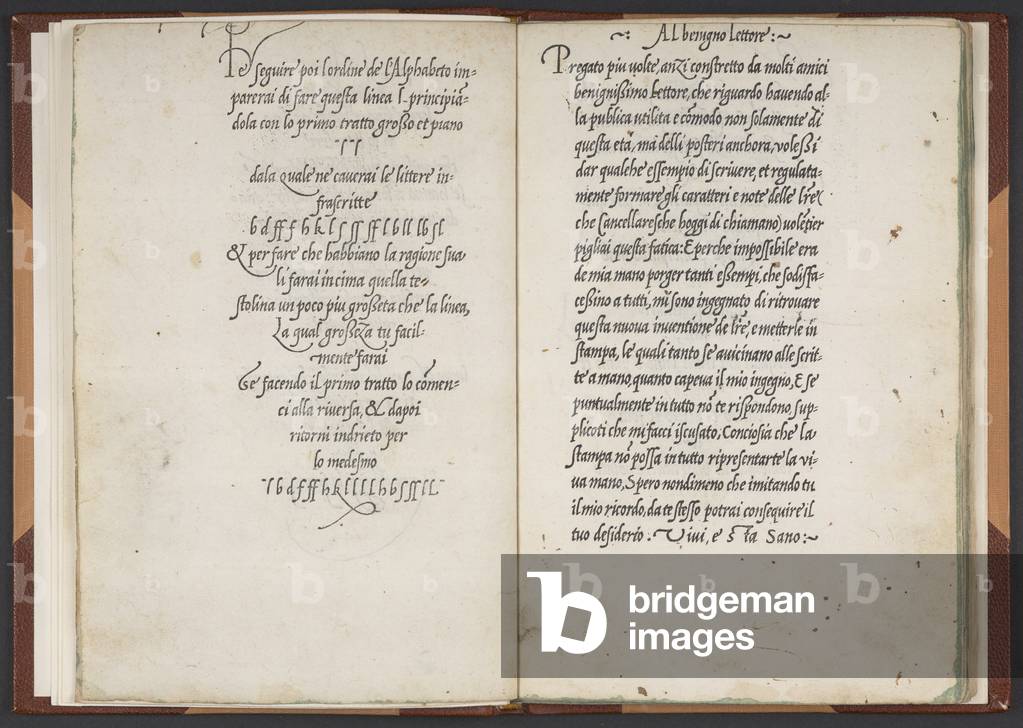 Per seguire poi lordine de l'Alphabeto im=
parerai di fare questa linea l principiā=
dola con lo primo tratto grosso et piano
dala quale ne caverai le littere in=
frascritte
b d ff f h k l ſ ſſ ſf l b ll lb ſl
& per fare che habbiano la ragione sua
li farai in cima quella te=
stolina un poco piu grosseta che la linea,
La qual grosseza tu facil=
mente farai
Se facendo il primo tratto lo cōmen=
ci alla riversa, & dapoi
ritorni indrieto per
lo medesmo
l b d f ff h k l l l l h b ſ ſſ i L
~: Al benigno Lettore :~
Pregato piu volte, anzi constretto da molti amici
benignissimo Lettore, che riguardo havendo al=
la publica utilita e cōmodo non solamente di
questa età, mà delli posteri anchora, volessi
dar qualche essempio di scrivere, et regulata=
mente formare gli caratteri e note delle lr̄e
che Cancellaresche hoggi di chiamano) volētier
pigliai questa fatica: E perche impossibile era
de mia mano porger tanti essempi, che sodisfa=
cessino a tutti, mi sono ingegnato di ritrovare
questa nuova inventione de lr̄e, e metterle in
stampa, le quali tanto se avicinano alle scrit=
te a mano quanto capeva il mio ingegno, E se
puntualmente in tutto nō te rispondono, sup=
plicoti che mi facci iscusato, Conciosia che la
stampa nō possa in tutto ripresentarte la vi=
va mano, Spero nondimeno che imitando tu
il mio ricordo, da te stesso potrai consequire il
tuo desiderio : Vivi, e Sta Sano :~
bridgeman
images